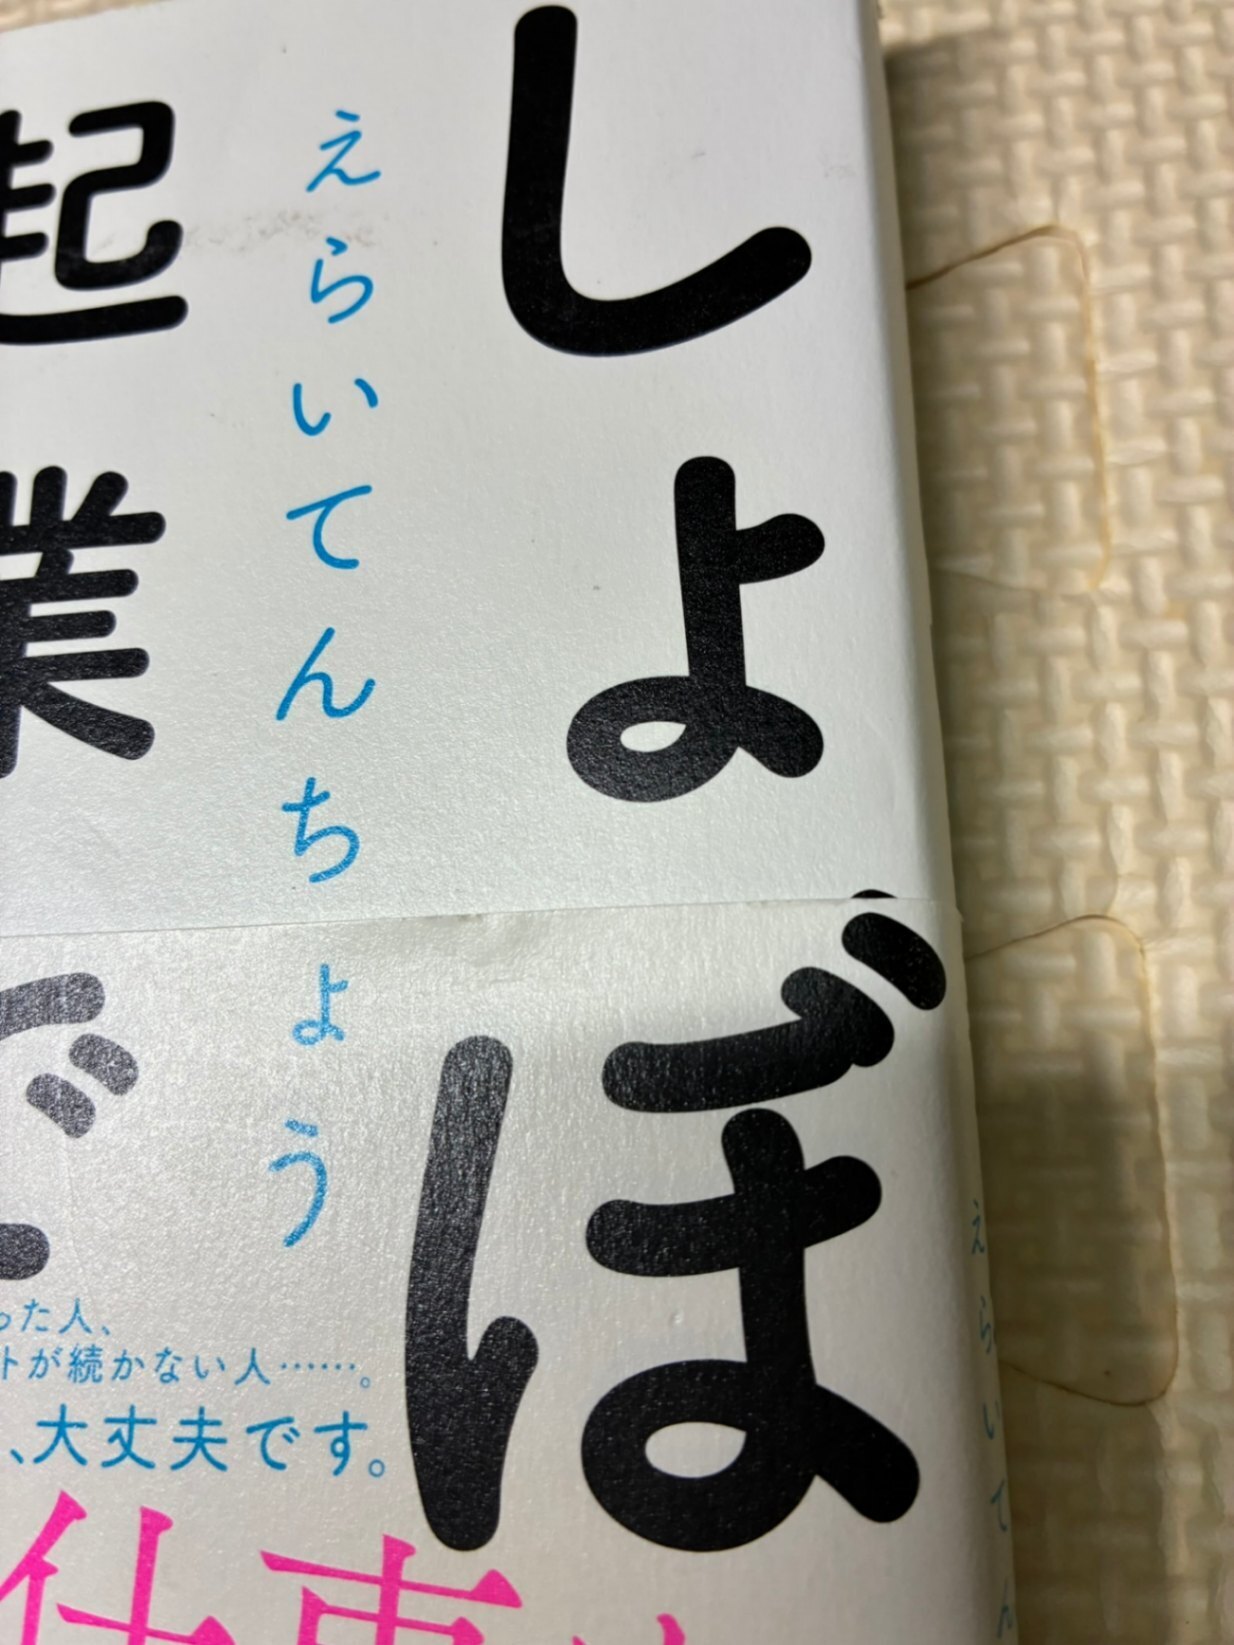 しょぼ
えらいてんちょう
起業で
った人、
トが続かない人……。
、大丈夫です。
仕事
えらいてん